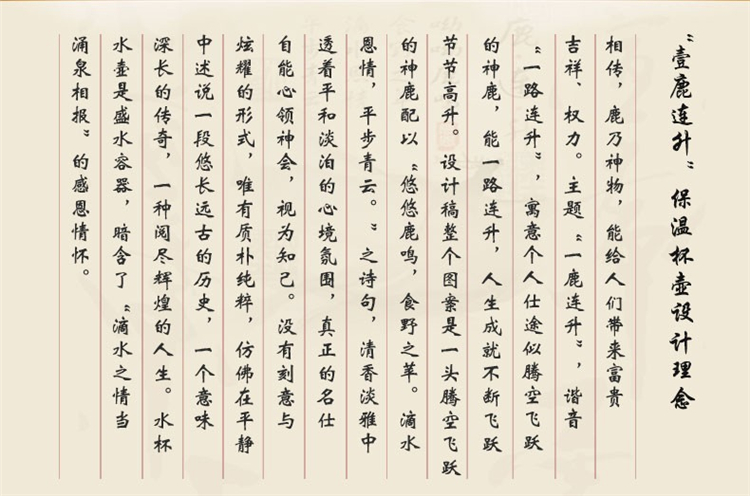 “壹鹿连升”保温杯壶设计理念
相传，鹿乃神物，能给人们带来富贵
吉祥、权力。主题“一鹿连升”，谐音
“一路连升”，寓意个人仕途似腾空飞跃
的神鹿，能一路连升，人生成就不断飞跃
节节高升。设计稿整个图案是一头腾空飞跃
的神鹿配以“悠悠鹿鸣，食野之苹。滴水
恩情，平步青云。”之诗句，清香淡雅中
透着平和淡泊的心境氛围，真正的名仕
自能心领神会，视为知己。没有刻意与
炫耀的形式，唯有质朴纯粹，仿佛在平静
中述说一段悠长远古的历史，一个意味
深长的传奇，一种阅尽辉煌的人生。水杯
水壶是盛水容器，暗含了“滴水之情当
涌泉相报”的感恩情怀。